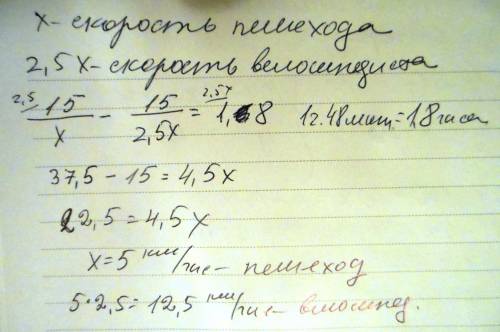 x - скорость пешехода
2,5x - скорость велосипедиста
2,5/ 15/x - 15/2,5x = 2,5x/ 1,8   1ч.48мин = 1,8 часа
37,5 - 15 = 4,5x
22,5 = 4,5x
x = 5 км/час - пешеход
5·2,5 = 12,5 км/час - велосипед.